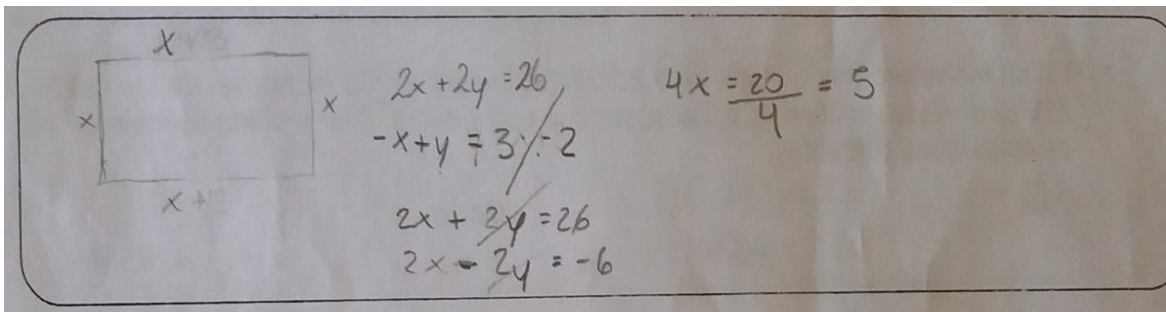 x+3
x
x
x+3
2x+2y=26
-x+y=3/·-2
2x+2y=26
2x-2y=-6
4x=20/4=5